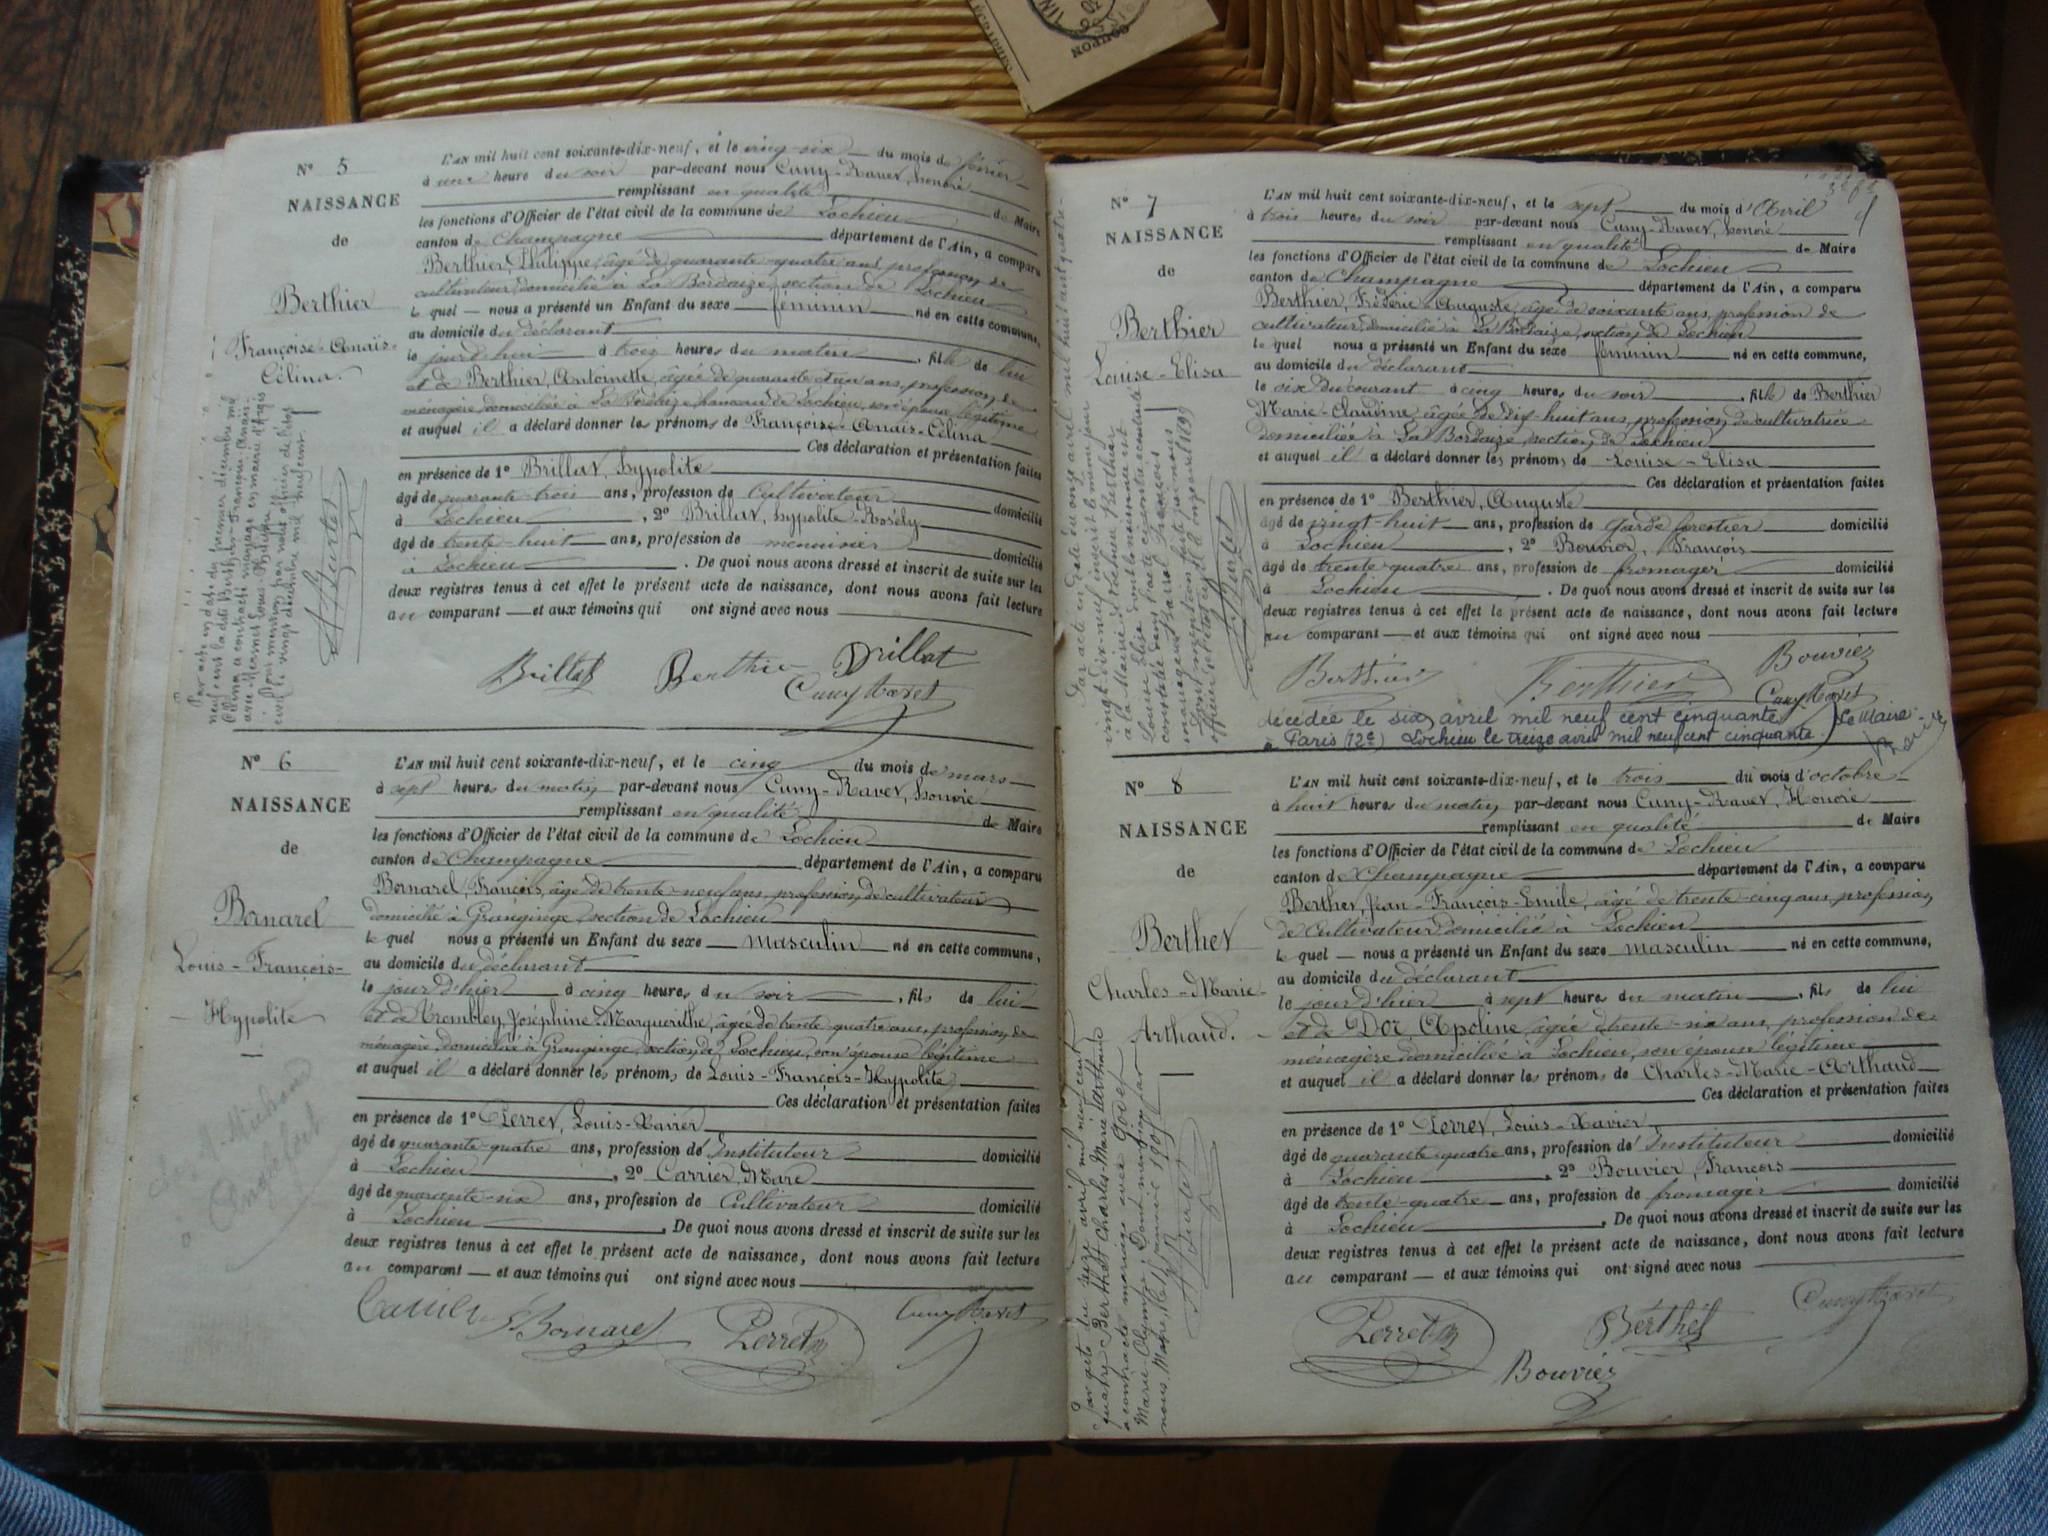 COUPON
N° 5
NAISSANCE
de
Berthier
Françoise-Anaïs-
Célina.
L'AN mil huit cent soixante-dix-neuf, et le vingt-six du mois de février
à une heure du soir par-devant nous Cuny-Ravet, honoré
remplissant en qualité de Maire
les fonctions d'Officier de l'état civil de la commune de Lochieu
canton de Champagne département de l'Ain, a comparu
Berthier, Philippe, âgé de quarante-quatre ans, profession de
cultivateur, domicilié à La Bordaize, section de Lochieu
le quel nous a présenté un Enfant du sexe féminin né en cette commune,
au domicile du déclarant
le jourd'hui à trois heures du matin, fille de lui
et de Berthier, Antoinette, âgée de quarante et un ans, profession de
ménagère, domiciliée à La Bordaize hameau de Lochieu, son épouse légitime
et auquel il a déclaré donner les prénoms de Françoise-Anaïs-Célina
Ces déclaration et présentation faites
en présence de 1° Brillat, hypolite
âgé de quarante-trois ans, profession de Cultivateur domicilié
à Lochieu, 2° Brillat, hypolite-Rosély
âgé de trente-huit ans, profession de menuisier domicilié
à Lochieu. De quoi nous avons dressé et inscrit de suite sur les
deux registres tenus à cet effet le présent acte de naissance, dont nous avons fait lecture
au comparant et aux témoins qui ont signé avec nous
Brillat Berthier Brillat
Cuny Ravet
Par acte en date du premier décembre mil
neuf cent la dite Berthier Françoise Anaïs-
Célina a contracté mariage en mairie d'
avec Mermet Louis
Dont mention par nous officier de l'état
civil le vingt décembre mil neuf cent.
N° 6
NAISSANCE
de
Bornarel
Louis-François-
Hypolite
L'AN mil huit cent soixante-dix-neuf, et le cinq du mois de mars
à sept heures du matin par-devant nous Cuny-Ravet, honoré
remplissant en qualité de Maire
les fonctions d'Officier de l'état civil de la commune de Lochieu
canton de Champagne département de l'Ain, a comparu
Bornarel, François, âgé de trente-neuf ans, profession de cultivateur
domicilié à Granginge, section de Lochieu
le quel nous a présenté un Enfant du sexe masculin né en cette commune,
au domicile du déclarant
le jour d'hier à cinq heures du soir, fils de lui
et de Trombley, Joséphine-Marguerithe, âgée de trente quatre ans, profession de
ménagère, domiciliée à Granginge, section de Lochieu, son épouse légitime
et auquel il a déclaré donner les prénoms de Louis-François-Hypolite
Ces déclaration et présentation faites
en présence de 1° Perret, Louis-Xavier
âgé de quarante-quatre ans, profession d'Instituteur domicilié
à Lochieu, 2° Carrier, Marc
âgé de quarante-six ans, profession de Cultivateur domicilié
à Lochieu. De quoi nous avons dressé et inscrit de suite sur les
deux registres tenus à cet effet le présent acte de naissance, dont nous avons fait lecture
au comparant et aux témoins qui ont signé avec nous
Carrier Bornarel Perret Cuny Ravet
N° 7
NAISSANCE
de
Berthier
Louise-Elisa
L'AN mil huit cent soixante-dix-neuf, et le sept du mois d'Avril
à trois heures du soir par-devant nous Cuny-Ravet, honoré
remplissant en qualité de Maire
les fonctions d'Officier de l'état civil de la commune de Lochieu
canton de Champagne département de l'Ain, a comparu
Berthier, Fréderic-Auguste, âgé de soixante ans, profession de
cultivateur, domicilié à La Bordaize, section de Lochieu
le quel nous a présenté un Enfant du sexe féminin né en cette commune,
au domicile du déclarant
le six du courant à cinq heures du soir, fille de Berthier
Marie-Claudine, âgée de dix-huit ans, profession de cultivatrice
domiciliée à La Bordaize, section de Lochieu
et auquel il a déclaré donner les prénoms de Louise-Elisa
Ces déclaration et présentation faites
en présence de 1° Berthier, Auguste
âgé de vingt-huit ans, profession de garde forestier domicilié
à Lochieu, 2° Bouvier, François
âgé de trente-quatre ans, profession de fromager domicilié
à Lochieu. De quoi nous avons dressé et inscrit de suite sur les
deux registres tenus à cet effet le présent acte de naissance, dont nous avons fait lecture
au comparant et aux témoins qui ont signé avec nous
Berthier Berthier Bouvier
Cuny Ravet
décédée le six avril mil neuf cent cinquante
à Paris (12e) Lochieu le treize avril mil neuf cent cinquante. Le Maire
Par acte en date du onze avril mil huit cent quatre-
vingt-dix-neuf inscrit le même jour
à la Mairie de Lochieu, Berthier,
Louise Elisa
N° 8
NAISSANCE
de
Berthet
Charles-Marie-
Arthaud.
L'AN mil huit cent soixante-dix-neuf, et le trois du mois d'octobre
à huit heures du matin par-devant nous Cuny-Ravet, Honoré
remplissant en qualité de Maire
les fonctions d'Officier de l'état civil de la commune de Lochieu
canton de Champagne département de l'Ain, a comparu
Berthet, Jean-François-Emile, âgé de trente-cinq ans, profession
de Cultivateur, domicilié à Lochieu
le quel nous a présenté un Enfant du sexe masculin né en cette commune,
au domicile du déclarant
le jour d'hier à sept heures du matin, fils de lui
et de Doz Apoline, âgée de trente-six ans, profession de
ménagère domiciliée à Lochieu, son épouse légitime
et auquel il a déclaré donner les prénoms de Charles-Marie-Arthaud
Ces déclaration et présentation faites
en présence de 1° Perret, Louis-Xavier
âgé de quarante-quatre ans, profession d'Instituteur domicilié
à Lochieu, 2° Bouvier, François
âgé de trente-quatre ans, profession de fromager domicilié
à Lochieu. De quoi nous avons dressé et inscrit de suite sur les
deux registres tenus à cet effet le présent acte de naissance, dont nous avons fait lecture
au comparant et aux témoins qui ont signé avec nous
Perret Berthet Cuny Ravet
Bouvier
Par acte du seize avril mil neuf cent
quatre Berthet Charles-Marie l'arthaud
a contracté mariage avec Godet
Marie-Olympe. Dont mention par
nous, Maire